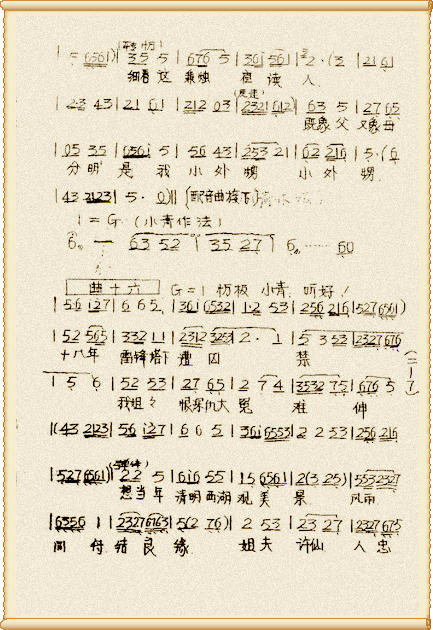 | 5 6561) | 3 5 5 | 676 5 | 36i 561 | 2 · (3 | 21 6 |
细看这 乘烛 夜 读 人
| 23 43 | 21 61 | 212 03 | 2321 612) | 63 5 | 27 65
既象父 又象母
| 05 35 | 656i 5 | 56 43 | 253 21 | 62 216 | 5 · (6
分明 是 我 小外 甥 小外 甥
| 43 2123 | 5 · 0) ||
1 = G (小青作法)
6 — 63 52 35 27 | 6 …… 60
曲十六 G = 1 小青 听好！
| 56 i27 | 6 65 | 36i 6532 | 1·2 53 | 256 216 | 527 6561)
| 52 565 | 332 11 | 2312 3253 | 2 · 1 | 5 3 53 | 2327 676
十八年 雷锋塔下 遭 囚 禁
| 5 6 | 52 53 | 27 65 | 2 7 4 | 3532 75 | 676 5
我姐姐 恨深仇大 冤 难 伸
| (43 2123 | 56 i27 | 6 6 5 | 36i 6553 | 2 2 53 | 256 216
| 527 6561) | 22 5 | 6i6 55 | 15 6561 | 2 (3 25) | 553 2327
想当年 清明西湖 观 美 景 风雨
| 6356 1 | 2327 6763 | 5 (2 76) | 2 53 | 23 27 | 2327 675
间 付 结 良 缘 姐夫 许仙 人 忠